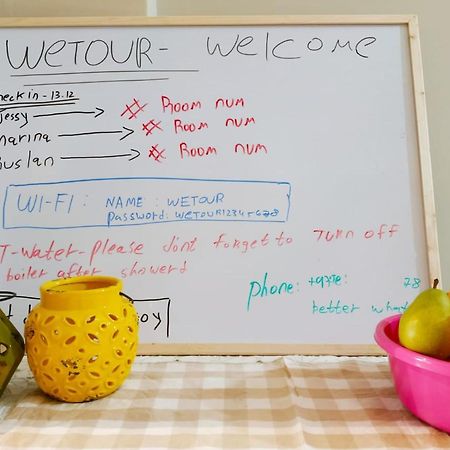 WETOUR - Welcome
check in - 13.12
jessy → # Room num
marina → # Room num
Ruslan → # Room num
WI-FI: NAME: WETOUR
password: WETOUR12345678
T-water-please dont forget to Turn off
boiler after showerd
phone: 78
better what